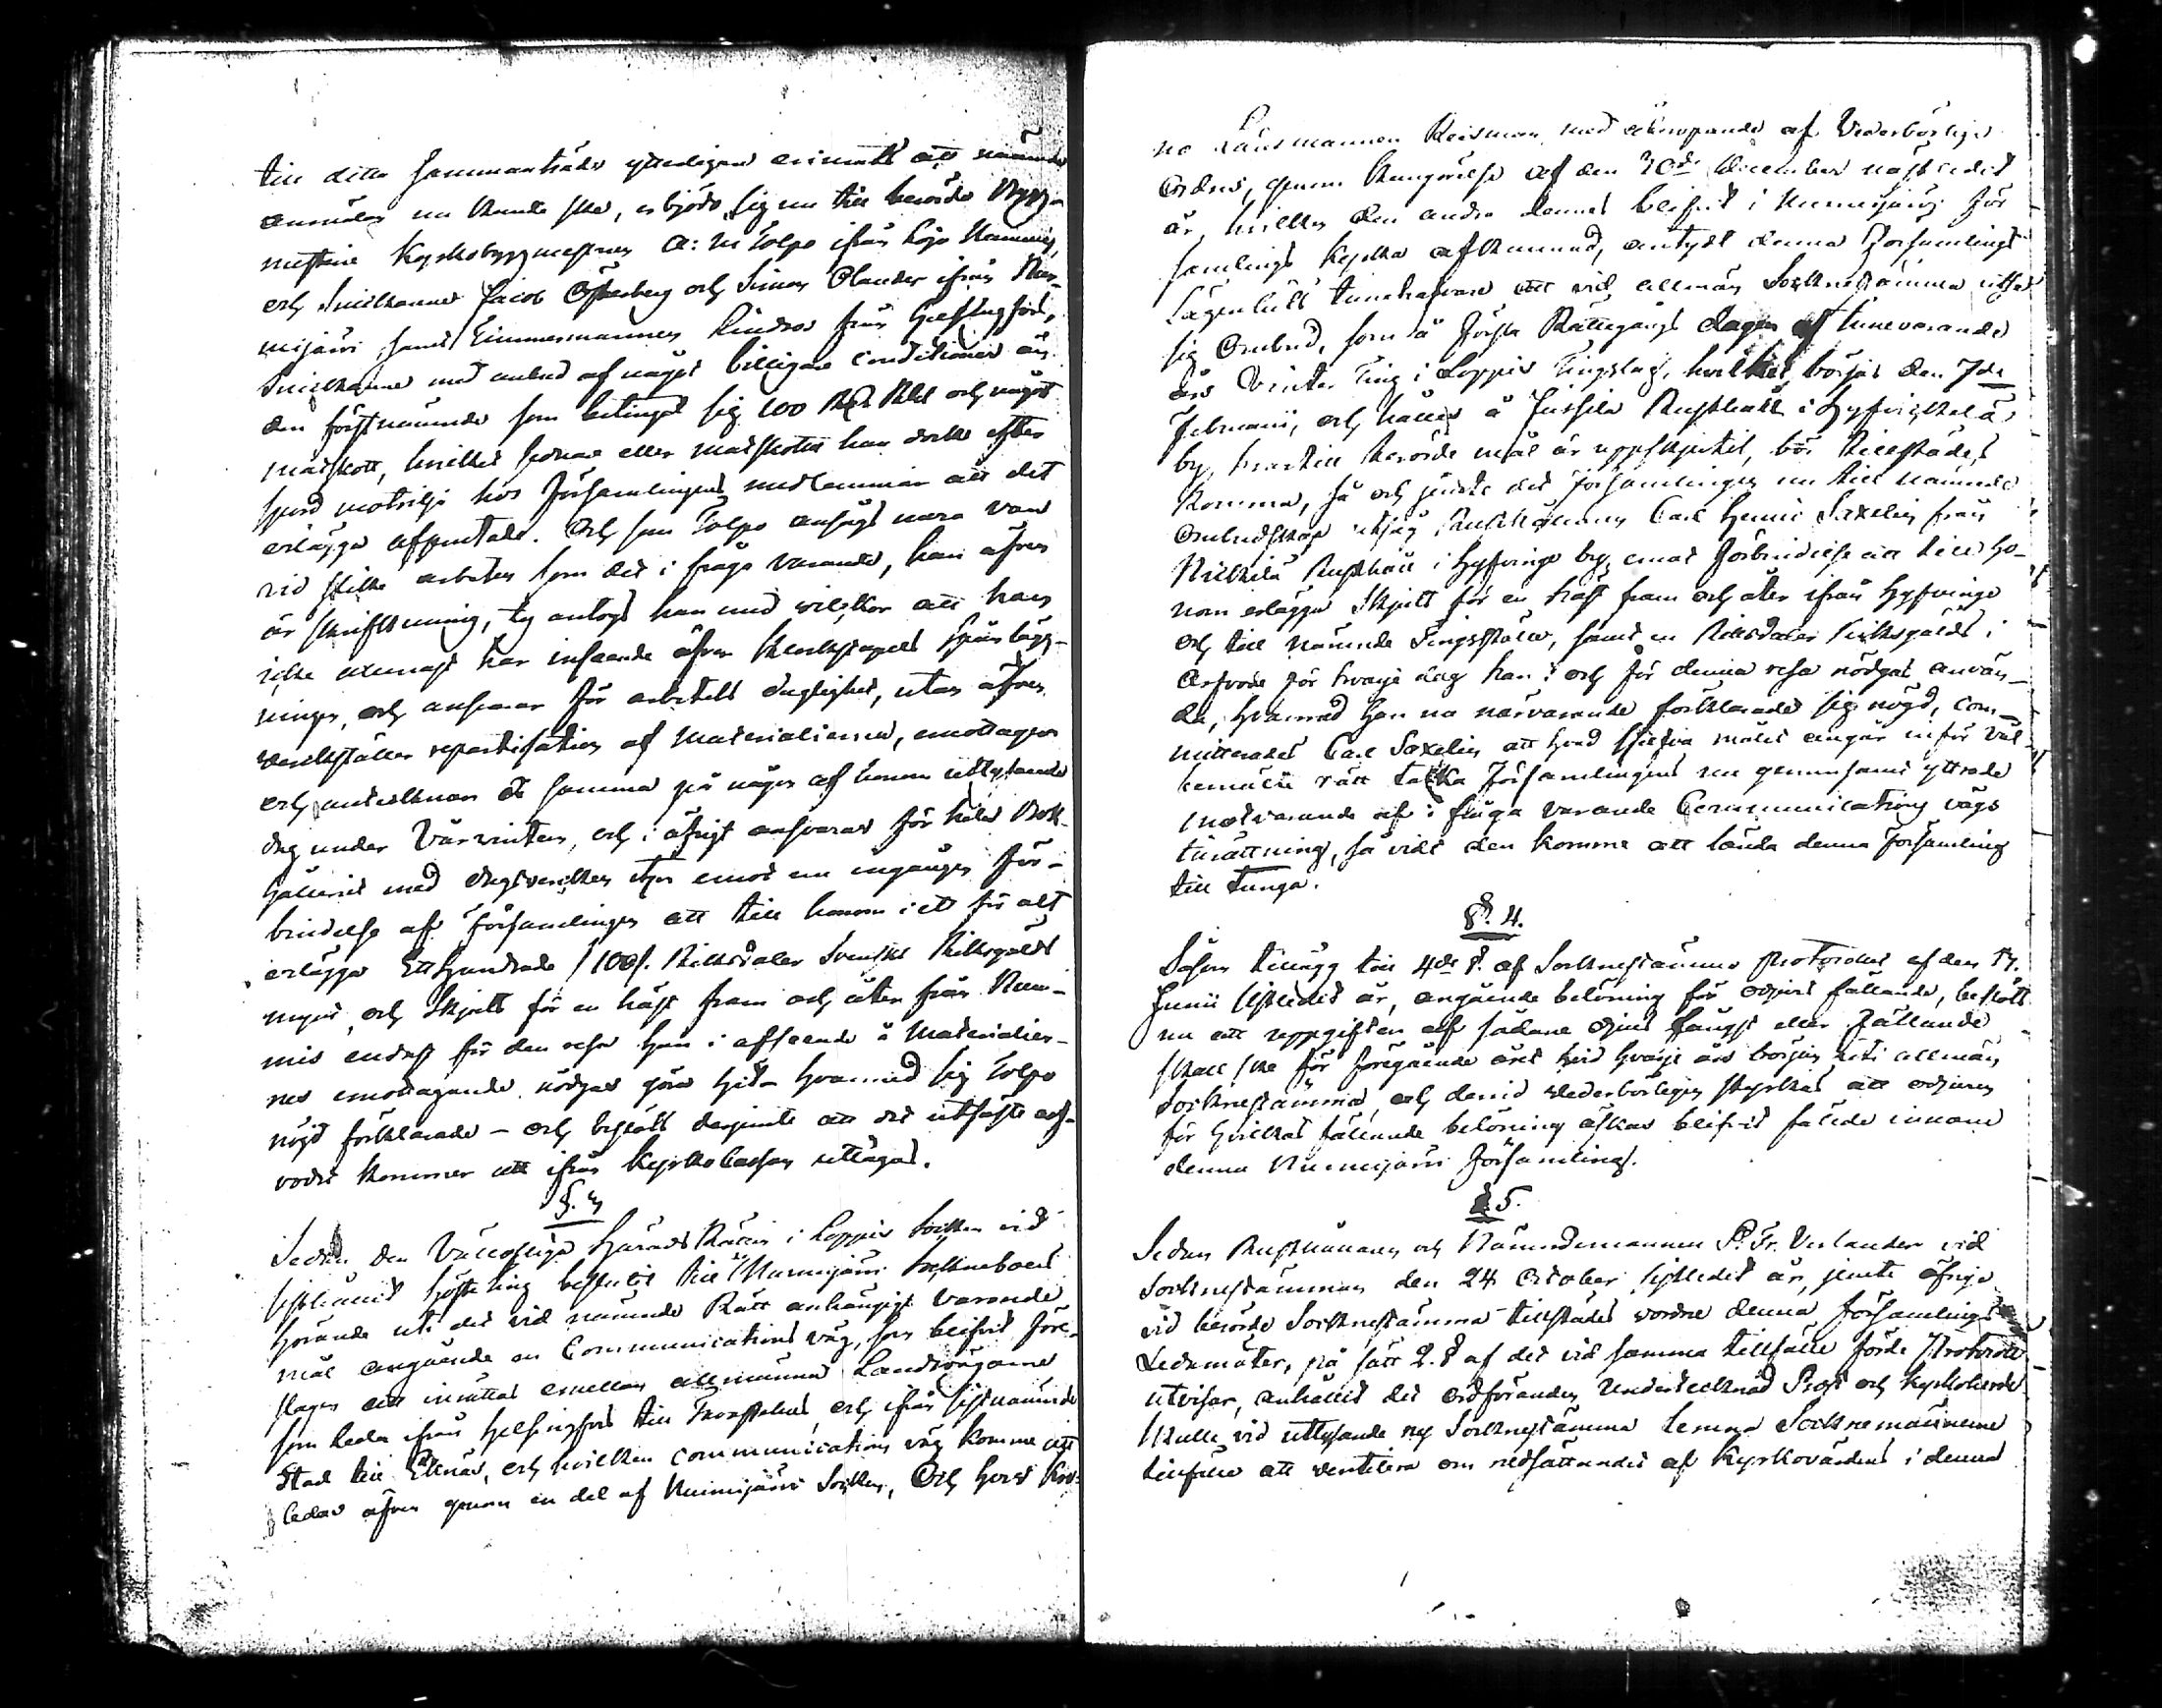 till detta sammanträde ytterligare erinrats att nämnde
anmälan nu kunde ske, erbjödo sig nu till berörde Bygg-
mästare Kyrkobyggmästaren A: M Tolpo ifrån Lojo
och Snickarne Jacob Österberg och Simon Olander ifrån Nur-
mijärvi samt Timmermannen Lindroos från Helsingfors,
Snickarne med anbud af något billigare conditioner än
den förstnämnde som betingat sig 100 R:dr Rkd och något
matskott, hvilket sednare eller matskottet han dock efter
spord motvilja hos Församlingens medlemmar att det
erlägga afprutade. Och som Tolpo ansågs mera van
vid slike arbeten som det i fråga varande, han äfven
är skrifkunnig, ty antogs han med vilkor att han
icke allenast har inseende öfver Klockstapels påläg-
ningen, och ansvarar för arbetets duglighet, utan äfven
verkställer repartisation af Materialierne, emottager
och antecknar samma på någon af honom utlysande
dag under Vårvintern, och i öfrigt ansvarar för hela Bok-
hålleriet med dagsverken etc emot en ingången för-
bindelse af Församlingen att till honom i ett för alt
erlägga Ett Hundrade /100/. Riksdaler Svenska Riksgälds
mynt, och Skjuts för en häst fram och åter från Num-
mis endast för den resa han i afseende å Materialier-
nes emottagande nödgas göra hit - hvarmed sig Tolpo
nöjd förklarade - och beslöts derjemte att det utfäste arf-
vodet kommer att ifrån Kyrko Cassan uttagas.
§. 3
Sedan den Vällofliga Härads Rätten i Loppis Socken vid
sistledit Höste ting beslutit till Nurmijärvi Sockneboers
hörande uti det vid nämnde Rätt anhängigt varande
mål angående en Communications väg, som blifvit före-
slagen att inrättas emellan allmänna Landsvägarne
som leda ifrån Helsingfors till Tavastehus, och ifrån sistnämnde
Stad till Ekenäs, och hvilken communications väg komme att
ledas äfven genom en del af Nurmijärvi Socken, Och hvars Kro-
no Länsmannen Reisman, med åberopande af Vederbörliga
Ordres, genom Kungörelse af den 30de December nästledit
år, hvilken den andra dennes blifvit i Nurmijärvi För
samlings Kyrka afkunnad, antydt denna Församlings
Lägenhets Innehafvare att vid allmän Socknestämma utse
sig Ombud, som å första Rättegångs dagen af innevarande
års Vinter Ting i Loppis Tingslag, hvilket börjas den 7de
Februarii, och hålles å Jussila Rusthåll i Hyfvinkää
by, hvartill berörde mål är uppskjutit, bör tillstädes
komma, så och jemte det Församlingen nu till nämnde
Ombudskap utsåg Rusthållaren Carl Henric Saxelin från
Mickelä Rusthåll i Hyfvinge by, emot förbindelse att till ho-
nom erlägga Skjuts för en häst fram och åter ifrån Hyfvinge
och till nämnde Tingsställe, samt en Riksdaler Riksgälds i
Arfvode för hvarje dag han i och för denna resa nödgas använ-
da, hvarmed han nu närvarande förklarade sig nöjd, com-
mitterades Carl Saxelin att hvad sjelfva målet angår inför Väl-
bemälte rätt tolka Församlingens nu gemensamt yttrade
motvarande af i fråga varande Communications vägs
inrättning, så vidt den komme att lända denna Församling
till tunga.
§. 4.
Såsom tillägg till 4de §. af Sockneståmmo Protocollet af den 17.
Junii sistledit år, angående belöning för odjurs fällande, beslöts
nu att uppgiften af sådane djurs fångst eller fällande
skall ske för föregående året vid hvarje års början uti allmän
Socknestämma, och dervid vederbörligen styrkas att odjuren
för hvilkas fällande belöning äskas blifvit fälde innom
denna Nurmijärvi Församling.
§ 5.
Sedan Rusthållaren och Nämndemannen P. Fr. Verlander vid
Socknestämman den 24 October sistledit år, jemte öfrige
vid berörde Socknestämma tillstädes vordne denna Församlings
Ledamöter, på sätt 2. § af det vid samma tillfälle förde Protocoll
utvisar, anhållit det ordföranden Undertecknad Prost och Kyrkoherde
skulle vid utlysande ny Socknestämma lemna Sockнemännerne
tillfälle att ventilera om nedsättandet af Kyrkovärdens i denna